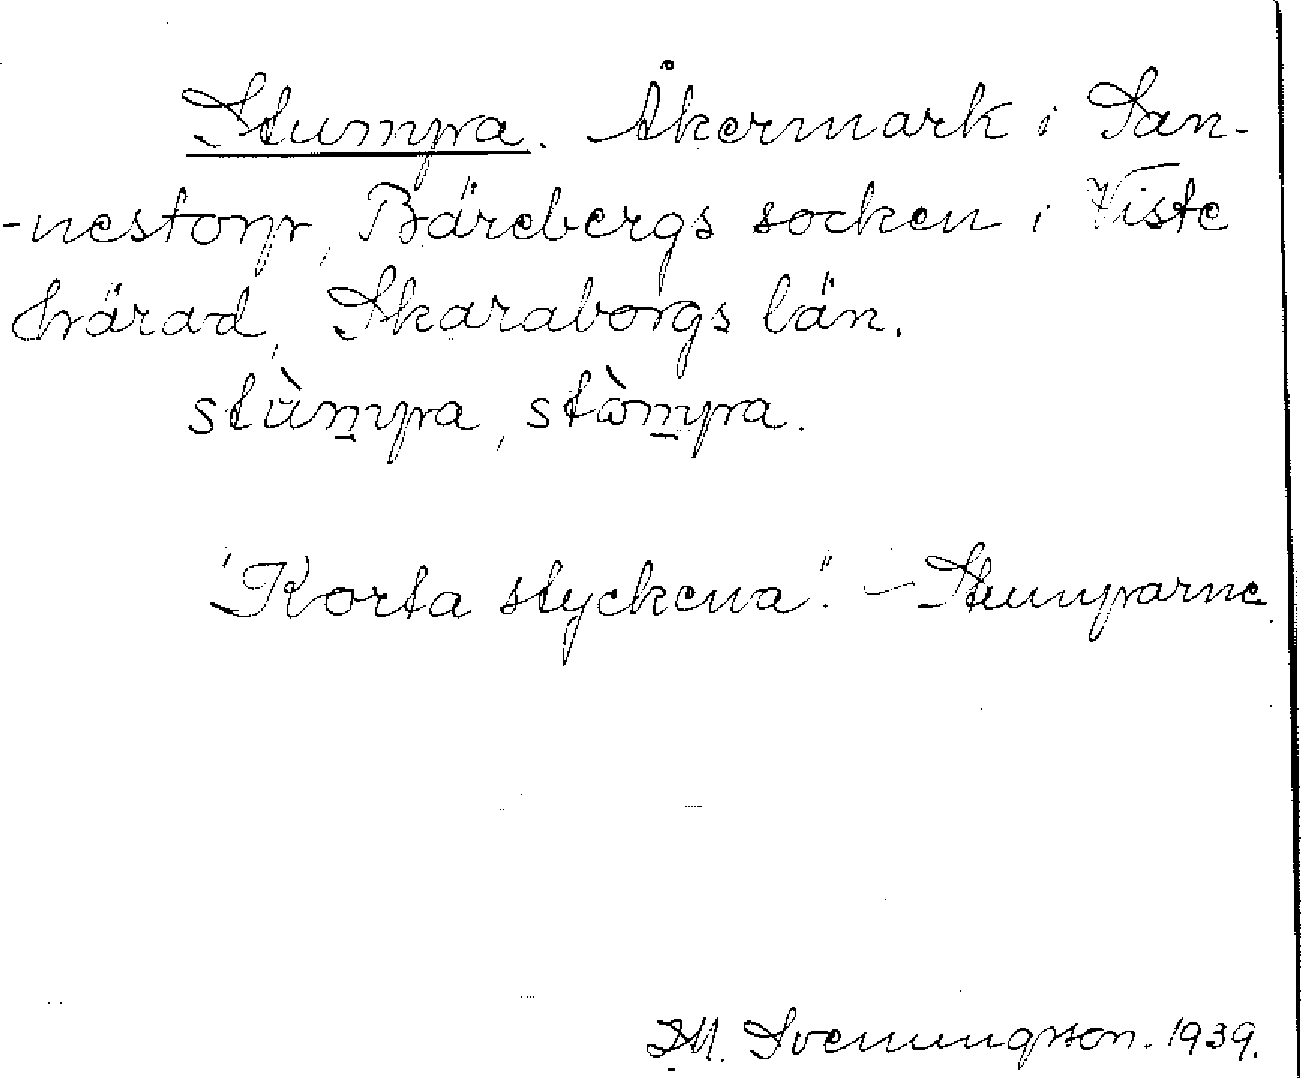 Stumpa. Åkermark i San-
-nestorp, Bärebergs socken i Viste
härad, Skaraborgs län.
stùm̲pa, stòm̲pa.
"Korta styckena". – Stumparne.
D.M. Svenungsson. 1939.